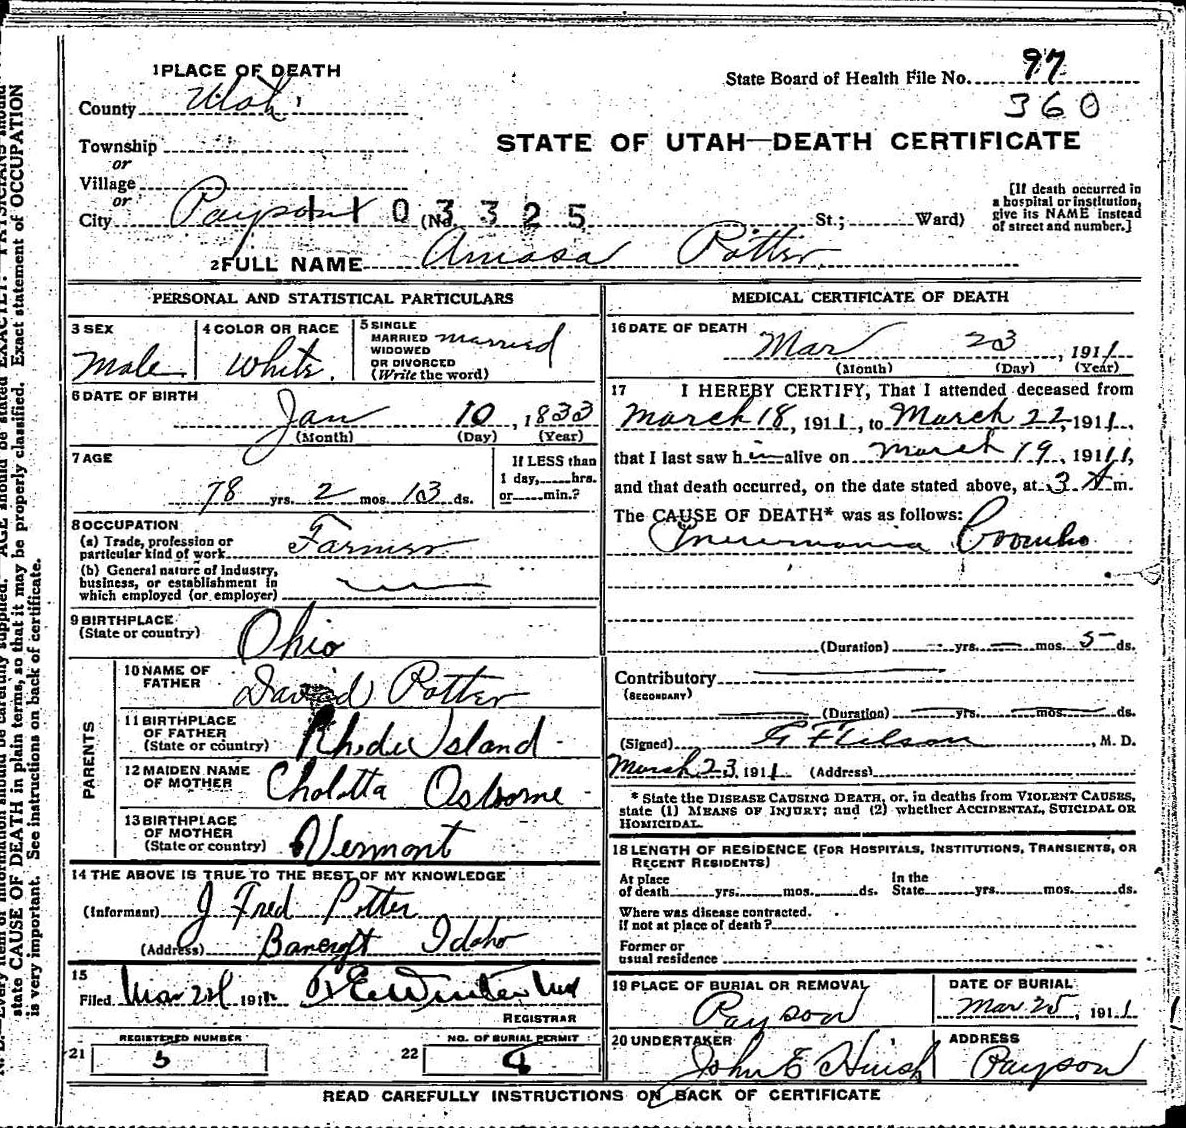 1 PLACE OF DEATH
County Utah
State Board of Health File No. 97
360
STATE OF UTAH—DEATH CERTIFICATE
Township
or
Village
or
City Payson (No. St.; Ward)
1103325
[If death occurred in
a hospital or institution,
give its NAME instead
of street and number.]
2 FULL NAME Amasa Potter
PERSONAL AND STATISTICAL PARTICULARS
3 SEX
Male
4 COLOR OR RACE
White.
5 SINGLE
MARRIED
WIDOWED
OR DIVORCED
(Write the word)
married
6 DATE OF BIRTH
Jan 10, 1833
(Month) (Day) (Year)
7 AGE
78 yrs. 2 mos. 13 ds.
If LESS than
1 day, hrs.
or min.?
8 OCCUPATION
(a) Trade, profession or
particular kind of work Farmer
(b) General nature of industry,
business, or establishment in
which employed (or employer)
9 BIRTHPLACE
(State or country) Ohio
PARENTS
10 NAME OF
FATHER David Potter
11 BIRTHPLACE
OF FATHER
(State or country) Rhode Island
12 MAIDEN NAME
OF MOTHER Cholotta Osborne
13 BIRTHPLACE
OF MOTHER
(State or country) Vermont
14 THE ABOVE IS TRUE TO THE BEST OF MY KNOWLEDGE
(Informant) J Fred Potter
(Address) Bancroft Idaho
15
Filed Mar 24 1911
REGISTRAR
REGISTERED NUMBER
21 5
NO. OF BURIAL PERMIT
22 4
MEDICAL CERTIFICATE OF DEATH
16 DATE OF DEATH
Mar 23, 1911
(Month) (Day) (Year)
17 I HEREBY CERTIFY, That I attended deceased from
March 18, 1911, to March 22, 1911,
that I last saw him alive on March 19, 1911,
and that death occurred, on the date stated above, at 3 A m.
The CAUSE OF DEATH* was as follows:
Pneumonia
(Duration) yrs. mos. 5 ds.
Contributory
(SECONDARY)
(Duration) yrs. mos. ds.
(Signed) M. D.
March 23, 1911 (Address)
* State the DISEASE CAUSING DEATH, or, in deaths from VIOLENT CAUSES,
state (1) MEANS OF INJURY; and (2) whether ACCIDENTAL, SUICIDAL OR
HOMICIDAL.
18 LENGTH OF RESIDENCE (FOR HOSPITALS, INSTITUTIONS, TRANSIENTS, OR
RECENT RESIDENTS)
At place
of death yrs. mos. ds.
In the
State yrs. mos. ds.
Where was disease contracted.
if not at place of death?
Former or
usual residence
19 PLACE OF BURIAL OR REMOVAL
Payson
DATE OF BURIAL
Mar 25, 1911
20 UNDERTAKER
John E Huish
ADDRESS
Payson
READ CAREFULLY INSTRUCTIONS ON BACK OF CERTIFICATE
state CAUSE OF DEATH in plain terms, so that it may be properly classified. Exact statement of OCCUPATION
is very important. See instructions on back of certificate.